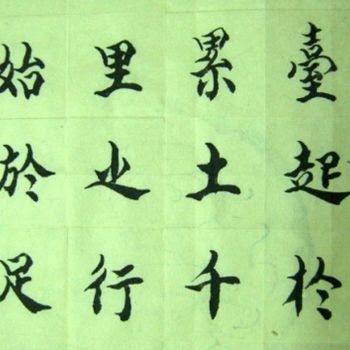 臺起於
累土千
里之行
始於足